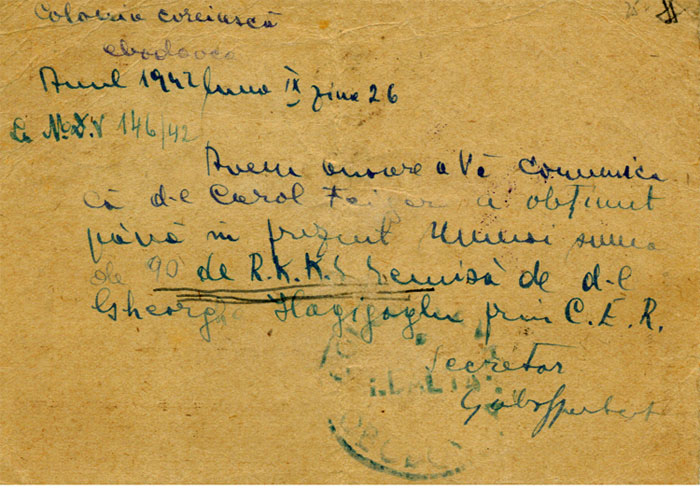 Colonia evreiască
Obodovca
Anul 1942 luna IX ziua 26
La No. 146/42
Avem onoare a Vă comunica
că d-l Carol Feiger a obținut
până în prezent numai suma
de 90 de R.K.K.S remisă de d-l
Gheorghe Hagigoglu prin C.E.R.
Secretar